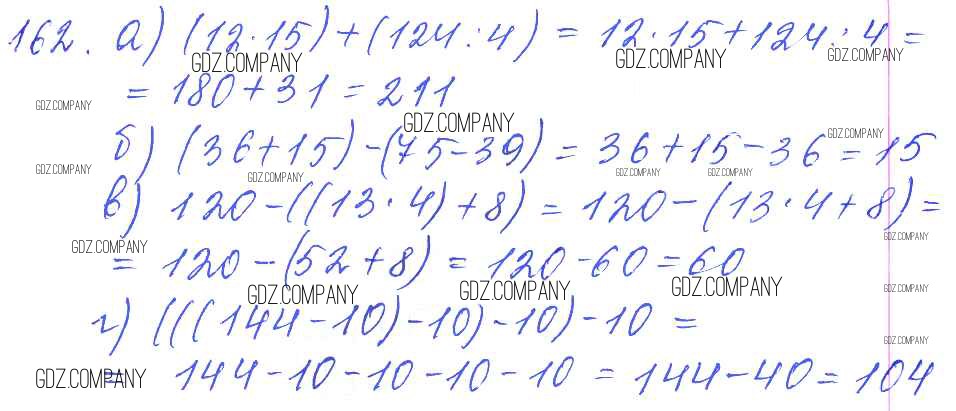 162. а) (12·15)+(124:4) = 12·15+124:4 =
GDZ.COMPANY GDZ.COMPANY GDZ.COMPANY
= 180+31 = 211
GDZ.COMPANY GDZ.COMPANY
б) (36+15)-(75-39) = 36+15-36 = 15
GDZ.COMPANY
GDZ.COMPANY GDZ.COMPANY GDZ.COMPANY GDZ.COMPANY
в) 120-((13·4)+8) = 120-(13·4+8) =
GDZ.COMPANY GDZ.COMPANY
= 120-(52+8) = 120-60 = 60
GDZ.COMPANY GDZ.COMPANY GDZ.COMPANY GDZ.COMPANY
г) (((144-10)-10)-10)-10 =
GDZ.COMPANY
= 144-10-10-10-10 = 144-40 = 104
GDZ.COMPANY